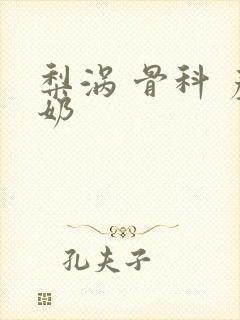 梨涡 骨科
奶
孔夫子